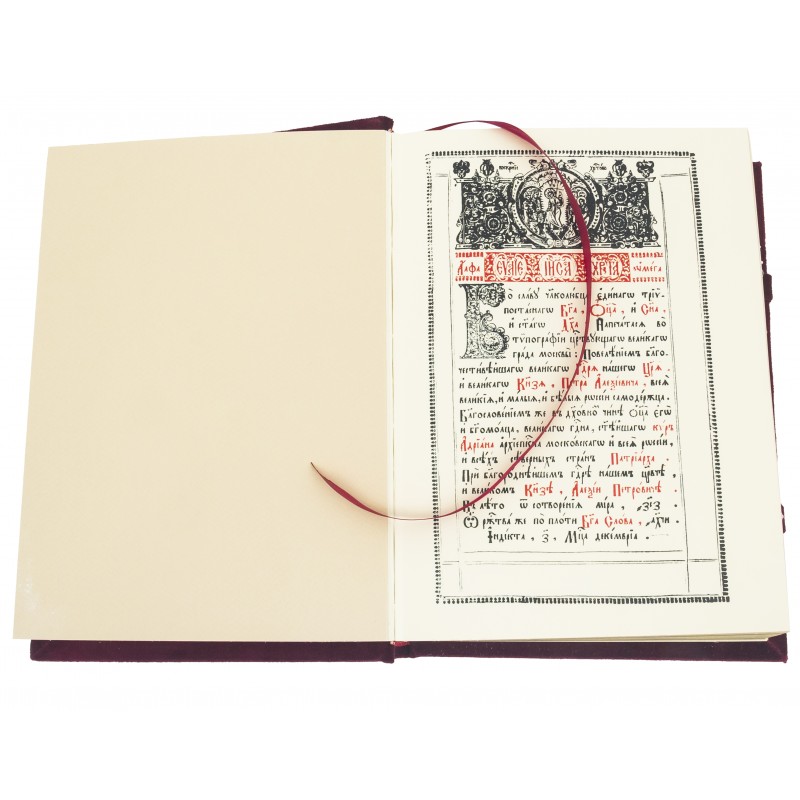 Алфа ЕѴⷢ҇ЛІЕ ІИ҃СА ХРⷭ҇ТА ѡ҆мега
Во славу единагѡ трїѵ
постаснагѡ Бг҃а, Ѻц҃а, и Сн҃а,
и ст҃агѡ Дх҃а Напечатася во
тѵпографїи црⷭ҇твующагѡ великагѡ
града москвы: Повелѣнїемъ благо
честивѣйшагѡ великагѡ Гдⷭ҇ря нашегѡ Цр҃я
и великагѡ Кн҃зя, Петра Алеѯїевича, всея
великїя, и малыя, и бѣлыя рѡссїи самодержца.
Благословенїемъ же въ дх҃овномъ чинѣ Ѻц҃а егѡ
и бг҃омолца, великагѡ гдⷭ҇на, ст҃ѣйшагѡ кѵръ
Адрїана архїепкⷭ҇па московскагѡ и всея рѡссїи,
и всѣхъ сѣверныхъ странъ Патрїарха
При благороднѣйшемъ гдⷭ҇рѣ нашемъ црⷭ҇втѣ,
и великомъ Кн҃зѣ, Алеѯїи Петровичѣ.
Въ лѣто ѿ сотворенїя мїра, ҂зс҃з.
Ѿ ржⷭ҇тва же по плоти Бг҃а Слова, ҂ахч҃и
Їндїкта, з҃, Мцⷭ҇а декемврїа.